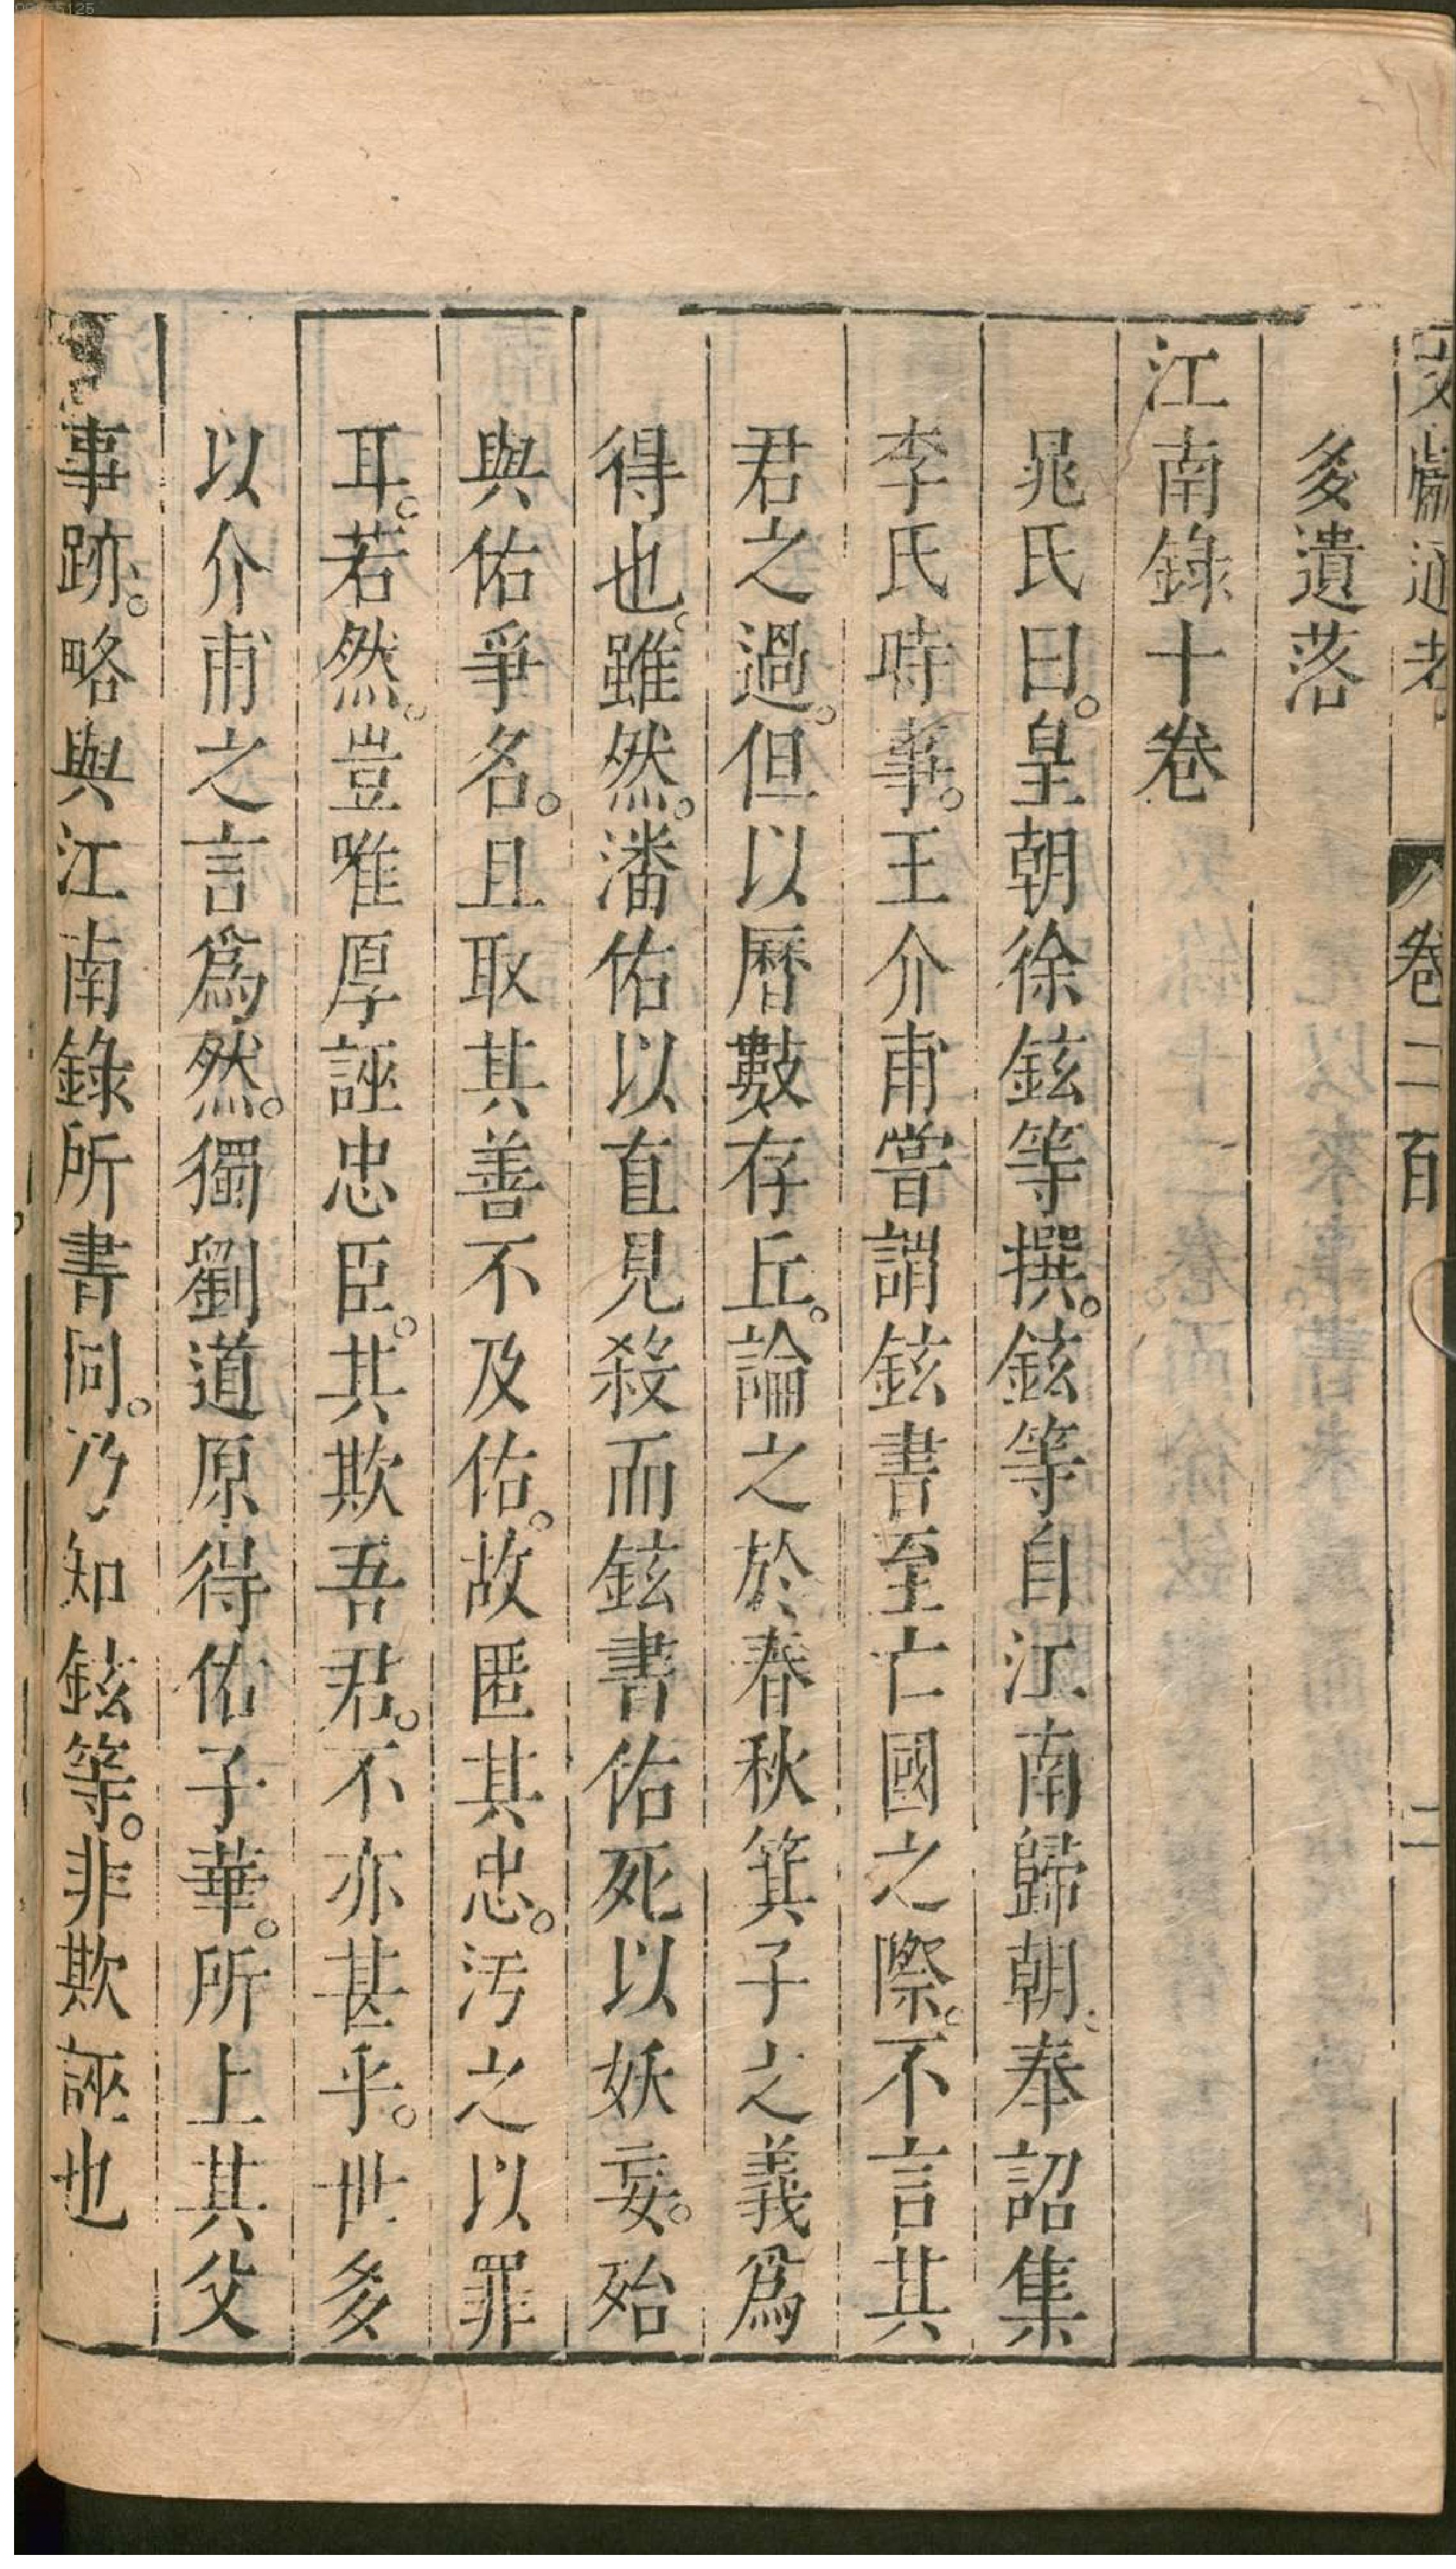 文獻通考 卷二百 二
多遺落
江南錄十卷
晁氏曰。皇朝徐鉉等撰。鉉等自江南歸朝。奉詔集
李氏時事。王介甫嘗謂鉉書至亡國之際。不言其
君之過。但以曆數存丘。論之於春秋箕子之義爲
得也。雖然。潘佑以直見殺而鉉書佑死以妖妄。殆
與佑爭名。且取其善不及佑。故匿其忠。汚之以罪
耳。若然。豈唯厚誣忠臣。其欺吾君。不亦甚乎。世多
以介甫之言爲然。獨劉道原得佑子華。所上其父
事跡。略與江南錄所書同。乃知鉉等。非欺誣也